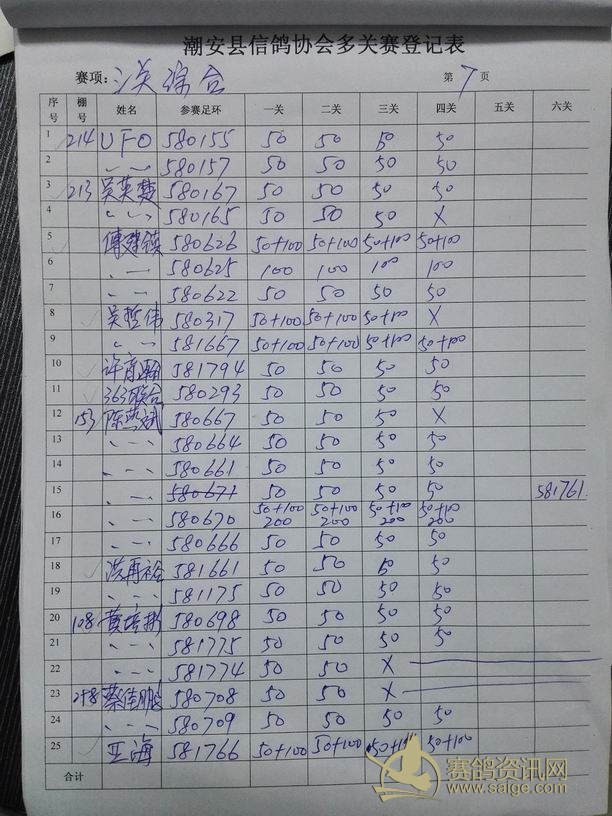 潮安县信鸽协会多关赛登记表
赛项: 三关综合 第7页
序号 棚号 姓名 参赛足环 一关 二关 三关 四关 五关 六关
1 214 UFO 580155 50 50 50 50
2 580157 50 50 50 50
3 213 吴英楚 580167 50 50 50 50
4 580165 50 50 50 X
5 傅建镇 580626 50+100 50+100 50+100 50+100
6 580625 100 100 100 100
7 580622 50 50 50 50
8 吴哲伟 580317 50+100 50+100 50+100 X
9 581667 50+100 50+100 50+100 50+100
10 581794 50 50 50 50
11 363联合 580293 50 50 50 50
12 153 陈燕斌 580667 50 50 50 X
13 580664 50 50 50 50
14 580661 50 50 50 50
15 580671 50 50 50 50 581761
16 580670 50+100 200 50+100 200 50+100 200 50+100 200
17 580666 50 50 50 50
18 洪再裕 581661 50 50 50 50
19 581175 50 50 50 50
20 108 黄培彬 580698 50 50 50 50
21 581775 50 50 50 50
22 581774 50 50 X
23 218 蔡佳鹏 580708 50 50 X
24 580709 50 50 50 50
25 亚海 581766 50+100 50+100 50+100 50+100
合计
赛鸽资讯网
www.saige.com